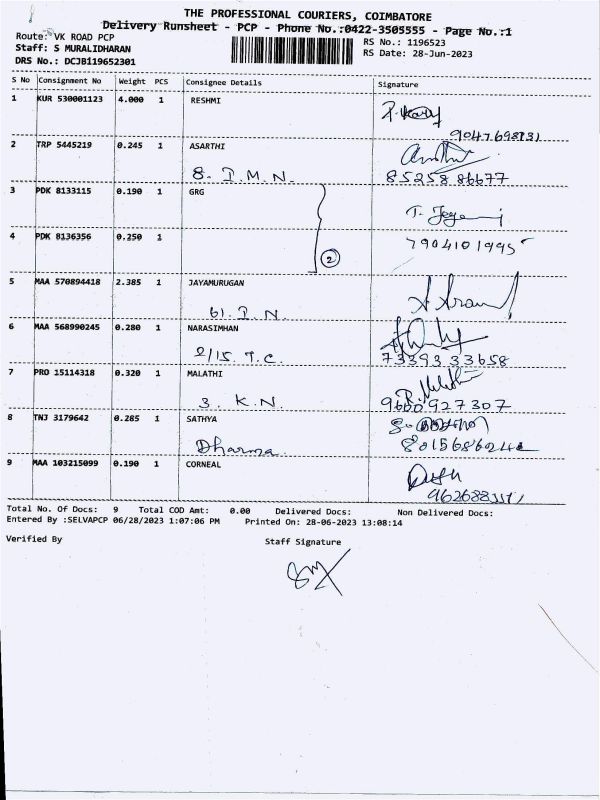 THE PROFESSIONAL COURIERS, COIMBATORE
Delivery Runsheet - PCP - Phone No.:0422-3505555 - Page No.:1
Route: VK ROAD PCP
RS No.: 1196523
Staff: S MURALIDHARAN
RS Date: 28-Jun-2023
DRS No.: DCJB119652301
S No Consignment No Weight PCS Consignee Details Signature
1 KUR 530001123 4.000 1 RESHMI
2 TRP 5445219 0.245 1 ASARTHI
8. I.M.N. 85258 86677
3 PDK 8133115 0.190 1 GRG
4 PDK 8136356 0.250 1 7904101995
2
5 MAA 570894418 2.385 1 JAYAMURUGAN
61. I.N.
6 MAA 568990245 0.280 1 NARASIMHAN
2/15 T.C. 73393 33658
7 PRO 15114318 0.320 1 MALATHI
3. K.N. 9600927307
8 TNJ 3179642 0.285 1 SATHYA
Dharma
9 MAA 103215099 0.190 1 CORNEAL
Total No. Of Docs: 9 Total COD Amt: 0.00 Delivered Docs: Non Delivered Docs:
Entered By :SELVAPCP 06/28/2023 1:07:06 PM Printed On: 28-06-2023 13:08:14
Verified By Staff Signature